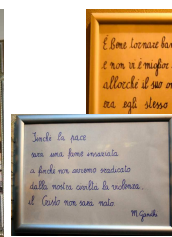 È Bene tornare bam
e non vi è miglior
allorché il suo
era egli stesso
Finché la pace
sarà una fame insaziata
a finché non avremo sradicato
dalla nostra civiltà la violenza
il Cristo non sarà nato
M. Gandhi